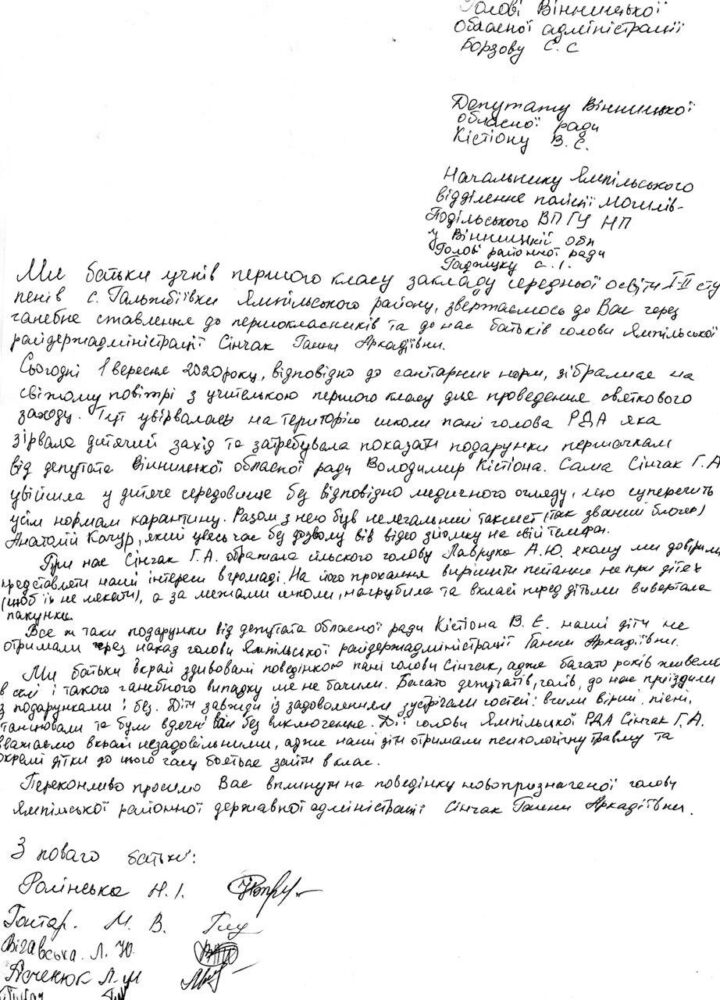 Голові Вінницької
обласної адміністрації
Борзову С. С
Депутату Вінницької
обласної ради
Кістіону В. Є.
Начальнику Ямпільського
відділення поліції Могилів-
Подільського ВП ГУ НП
у Вінницкій обл
Голові районної ради
Гаджуку С. І.
Ми батьки учнів першого класу закладу середньої освіти I-II сту
пенів с. Гальжбіївки Ямпільського району, звертаємось до Вас через
ганебне ставлення до першокласників та до нас батьків голови Ямпільської
райдержадміністрації Сінчак Ганни Аркадіївни.
Сьогодні 1 вересня 2020 року, відповідно до санітарних норм, зібралися на
свіжому повітрі з учителькою першого класу для проведення святкового
заходу. Тут увірвалась на територію школи пані голова РДА яка
зірвала дитячий захід та затребувала показати подарунки першачкам
від депутата Вінницької обласної ради Володимир Кістіона. Сама Сінчак Г.А
увійшла у дитяче середовище без відповідно медичного огляду, що суперечить
усім нормам карантину. Разом з нею був нелегальний таксист (так званий блогер)
Анатолій Качур, який увесь час без дозволу вів відео зйомку на свій телефон.
При нас Сінчак Г.А. ображала сільського голову Лаврука А.Ю. якому ми довірили
представляти наші інтереси в громаді. На його прохання вирішити питання не при дітях
(щоб їх не лякати), а за межами школи, нагрубила та вкласі перед дітьми вивертала
пакунки.
Все ж таки подарунки від депутата обласної ради Кістіона В. Є. наші діти не
отримали через наказ голови Ямпільської райдержадміністрації Ганни Аркадіївни.
Ми батьки вкрай здивовані поведінкою пані голови Сінчак, адже багато років живемо
в селі і такого ганебного випадку ще не бачили. Багато депутатів, голів, до нас приїздили
з подарунками і без. Діти завжди із задоволенням зустрічали гостей: вчили вірші, пісні,
танцювали та були вдячні всім без виключення. Дії голови Ямпільцкої РДА Сінчак Г.А.
вважаємо вкрай незадовільними, адже наші діти отримали психологічну травму та
окремі дітки до цього часу бояться зайти в клас.
Переконливо просимо Вас вплинути на поведінку новопризначеної голови
Ямпільської районної державної адміністрації Сінчак Ганни Аркадіївни.
З поваго батьки:
Ролінська Н. І.
Гонтар. М. В.
Вігавська. Л. Ю.
Л. М